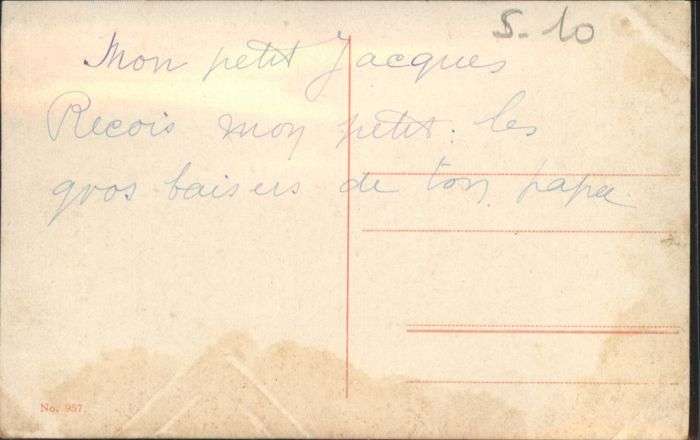 5-10
Mon petit Jacques
Recois mon petit. les
gros baisers de ton papa
No. 957.